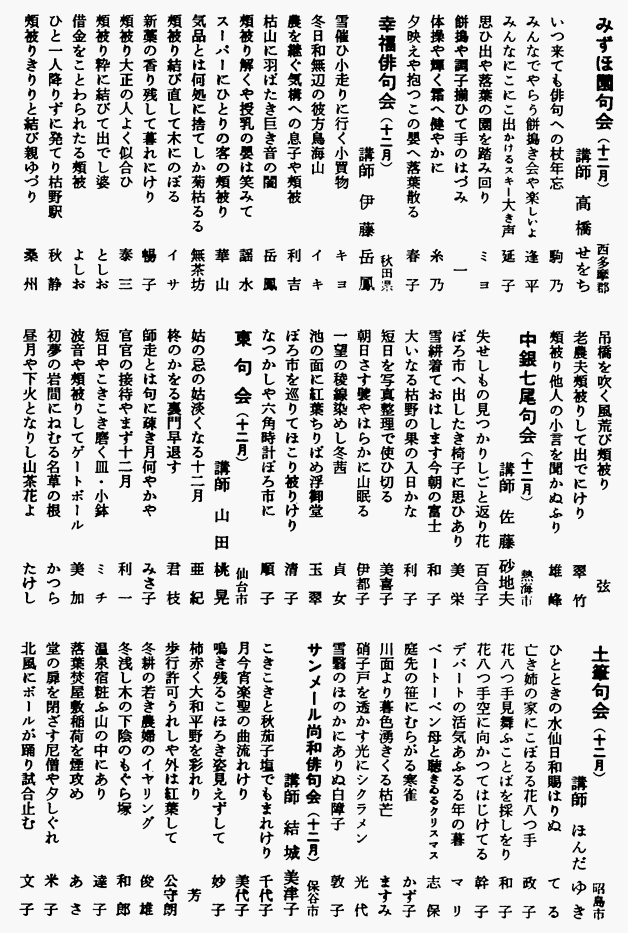 みずほ園句会（十二月）
講師　高橋せをち　西多摩郡
いつ来ても俳句への杖年忘　駒乃
みんなでやらう餅搗き会や楽しいよ　逢平
みんなにこにこ出かけるスキー大き声　延子
思ひ出や落葉の園を踏み回り　ミヨ
餅搗や調子揃ひて手のはづみ　一
体操や輝く霜へ健やかに　糸乃
夕映えや抱つこの嬰へ落葉散る　春子
幸福俳句会（十二月）　秋田県
講師　伊藤岳鳳
雪催ひ小走りに行く小買物　キヨ
冬日和無辺の彼方鳥海山　イキ
農を継ぐ気構への息子や頬被　利吉
枯山に羽ばたき巨き音の闇　岳鳳
頬被り解くや授乳の嬰は笑みて　謡水
スーパーにひとりの客の頬被り　華山
気品とは何処に捨てしか菊枯るる　無茶坊
頬被り結び直して木にのぼる　イサ
新藁の香り残して暮れにけり　暢子
頬被り大正の人よく似合ひ　泰三
頬被り粋に結びて出でし婆　としお
借金をことわられたる頬被　よしお
ひと一人降りずに発てり枯野駅　秋静
頬被りきりりと結び親ゆづり　桑州
吊橋を吹く風荒び頬被り　弦
老農夫頬被りして出でにけり　翠竹
頬被り他人の小言を聞かぬふり　雄峰
中銀七尾句会（十二月）　熱海市
講師　佐藤砂地夫
失せしもの見つかりしごと返り花　百合子
ぼろ市へ出したき椅子に思ひあり　美栄
雪絣着ておはします今朝の富士　和子
大いなる枯野の果の入日かな　利子
短日を写真整理で使ひ切る　美喜子
朝日さす襞やはらかに山眠る　伊都子
一望の稜線染めし冬茜　貞女
池の面に紅葉ちりばめ浮御堂　玉翠
ぼろ市を巡りてほこり被りけり　清子
なつかしや六角時計ぼろ市に　順子
東句会（十二月）　仙台市
講師　山田桃晃
姑の忌の姑淡くなる十二月　亜紀
柊のかをる裏門早退す　君枝
師走とは句に疎き月何やかや　みさ子
官官の接待やまず十二月　利一
短日やこきこき磨く皿・小鉢　ミチ
波音や頬被りしてゲートボール　美加
初夢の岩間にねむる名草の根　かつら
昼月や下火となりし山茶花よ　たけし
土筆句会（十二月）　昭島市
講師　ほんだゆき
ひとときの水仙日和賜はりぬ　てる
亡き姉の家にこぼるる花八つ手　政子
花八つ手見舞ふことばを探しをり　和子
花八つ手空に向かつてはじけてる　幹子
デパートの活気あふるる年の暮　マリ
ベートーベン母と聴きゐるクリスマス　志保
庭先の笹にむらがる寒雀　かず子
川面より暮色湧きくる枯芒　ますみ
硝子戸を透かす光にシクラメン　光代
雪翳のほのかにありぬ白障子　敦子
サンメール尚和俳句会（十二月）　保谷市
講師　結城美津子
こきこきと秋茄子塩でもまれけり　千代子
月今宵楽聖の曲流れけり　美代子
鳴き残るこほろぎ姿見えずして　妙子
柿赤く大和平野を彩れり　芳
歩行許可うれしや外は紅葉して　公守朗
冬耕の若き農婦のイヤリング　俊雄
冬浅し木の下陰のもぐら塚　和郎
温泉宿粧ふ山の中にあり　達子
落葉焚屋敷稲荷を煙攻め　あさ
堂の扉を閉ざす尼僧や夕しぐれ　米子
北風にボールが踊り試合止む　文子